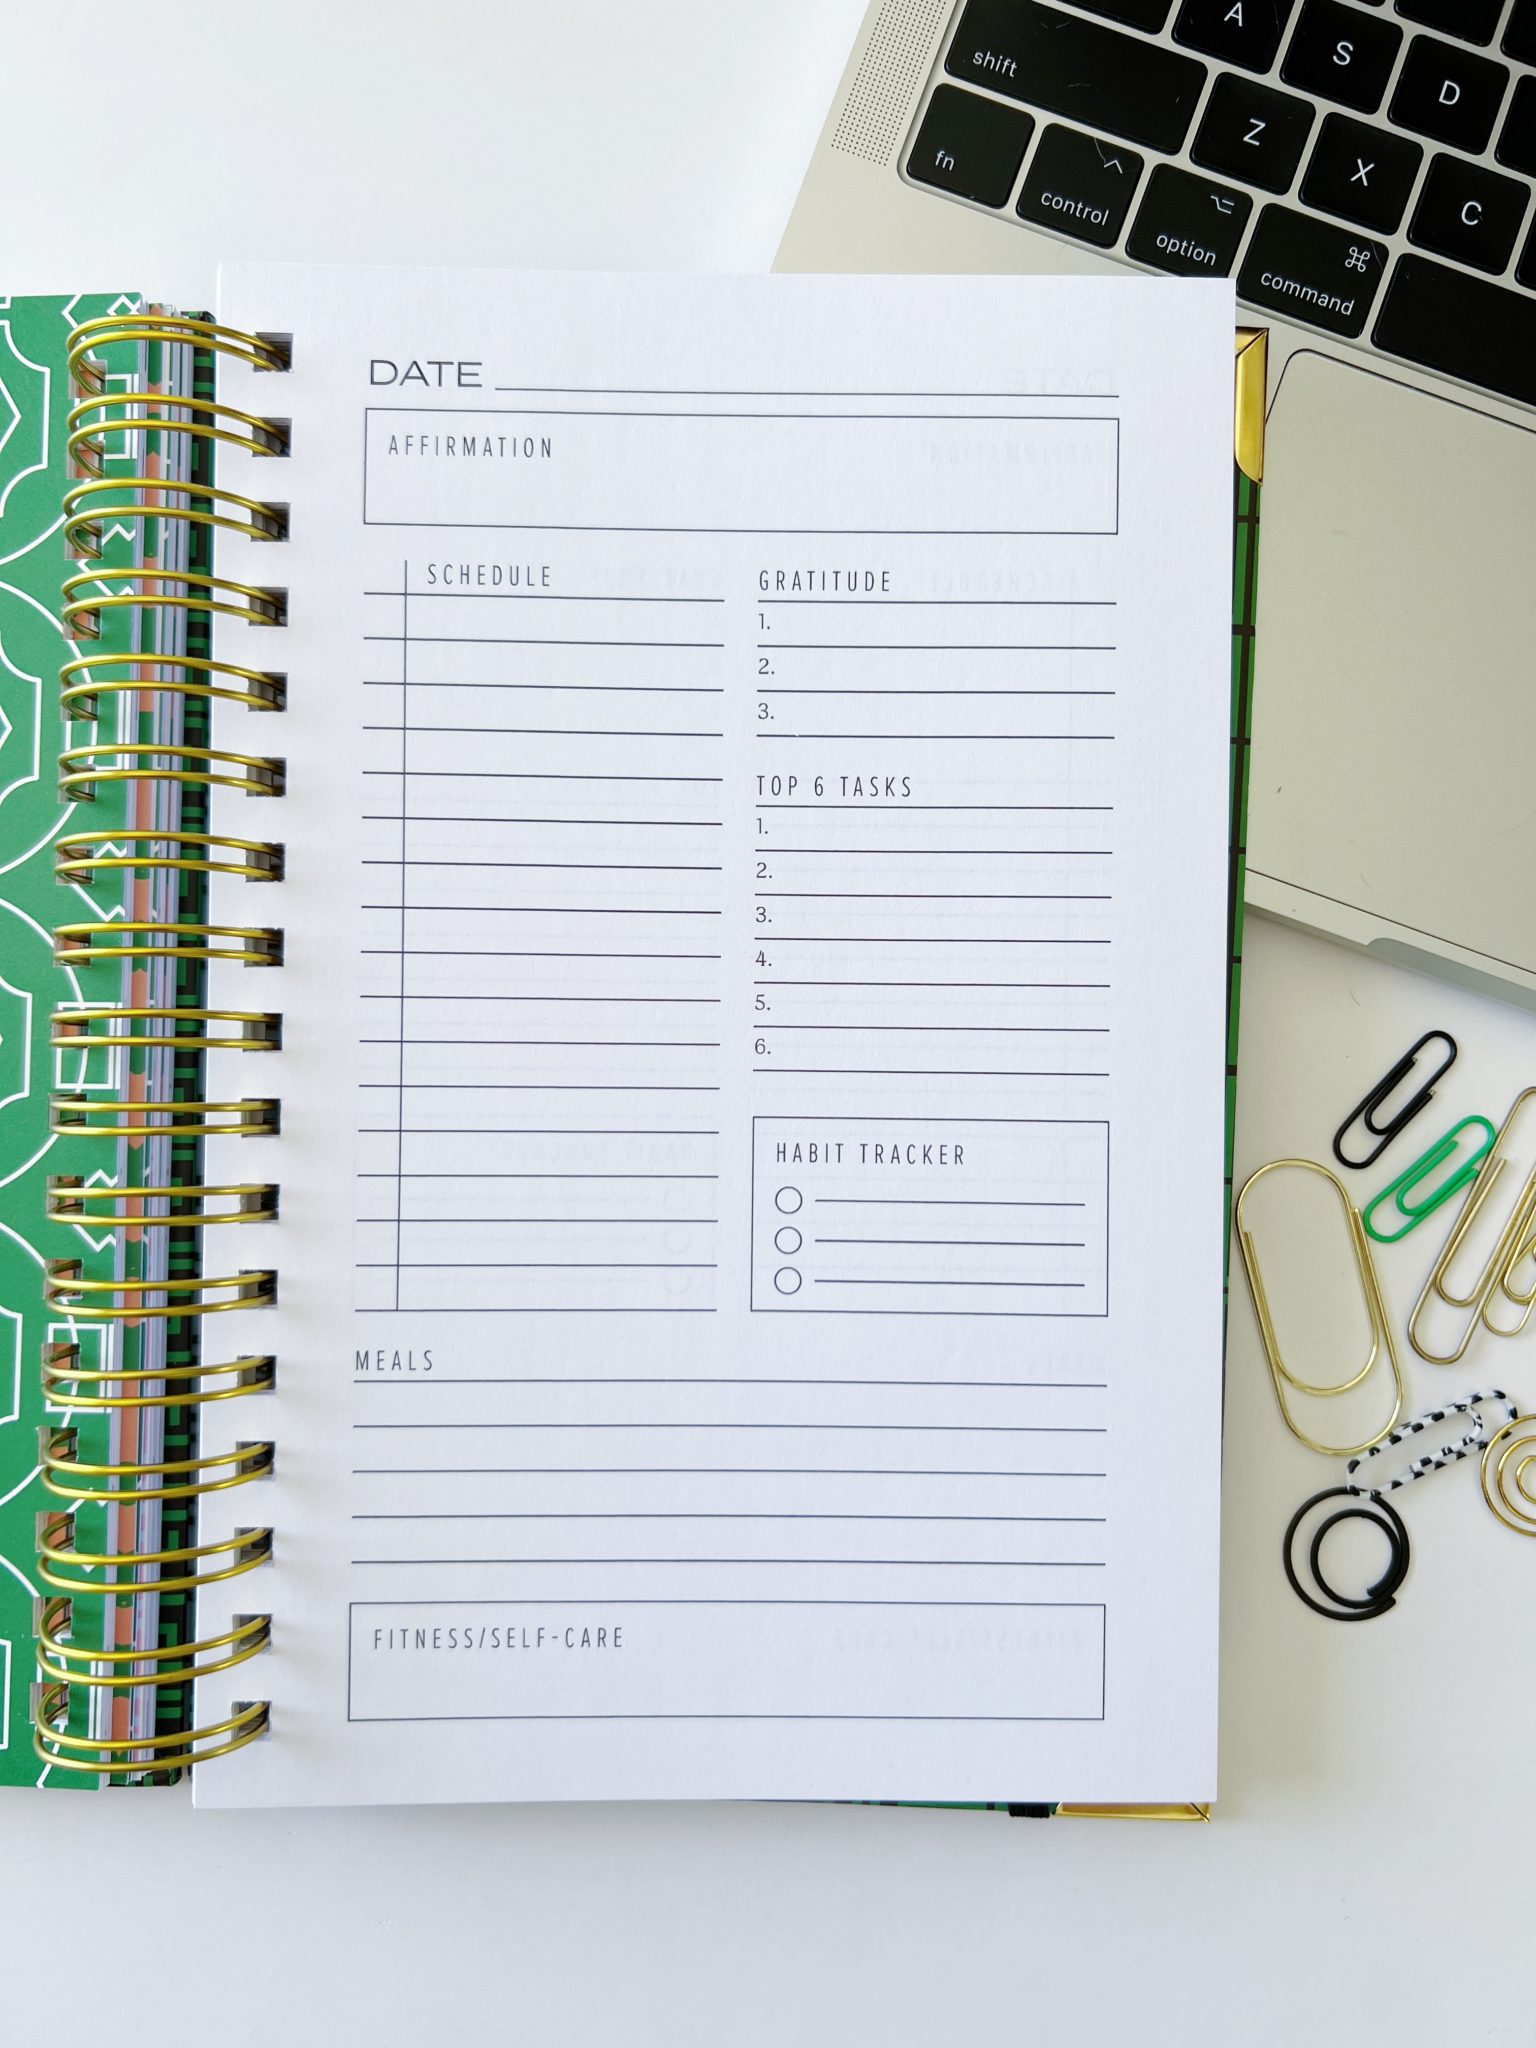 A
S
D
shift
Z
X
C
fn
control
option
command
DATE
AFFIRMATION
SCHEDULE
GRATITUDE
1.
2.
3.
TOP 6 TASKS
1.
2.
3.
4.
5.
6.
HABIT TRACKER
MEALS
FITNESS/SELF-CARE